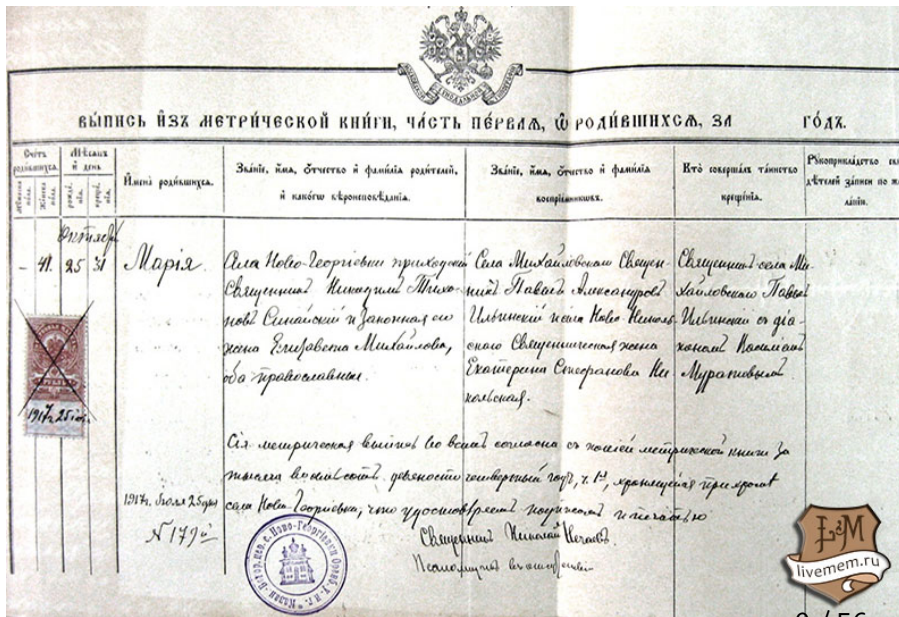 ВЫПИСЬ ИЗЪ МЕТРИЧЕСКОЙ КНИГИ, ЧАСТЬ ПЕРВАЯ, Ѿ РОДИВШИХСЯ, ЗА ГОДЪ.
Счетъ родившихся.
Мѣсяцъ и день
Имена родившихся.
Званіе, имя, отчество и фамилія родителей, и какого вѣроисповѣданія.
Званіе, имя, отчество и фамилія воспріемниковъ.
Кто совершалъ таинство крещенія.
Рукоприкладство
дѣтелей записи по
Октябрь
- 41. 25 31
Марія.
Села Ново-Георгіевки приходскій
Священникъ Никодимъ Тихо-
новъ Синайскій и законная его
жена Елизавета Михайлова,
оба православные.
Села Михайловскаго Священ-
никъ Павелъ Александровъ
Ильинскій и села Ново-Николь-
скаго Священническая жена
Екатерина Стефанова Ни-
кольская.
Священникъ села Ми-
хайловскаго Павелъ
Ильинскій съ діа-
кономъ
Муратовымъ
1917 25
Сія метрическая выпись во всемъ согласна съ метрической книги за
тысяча восемьсотъ девяносто четвертый годъ, ч. 1ая, хранящейся при
1917г. Іюля 25 дня
села Ново-Георгіевки, что удостовѣряетъ подписомъ и печатью
№ 179
Священникъ Николай
L&M
livemem.ru